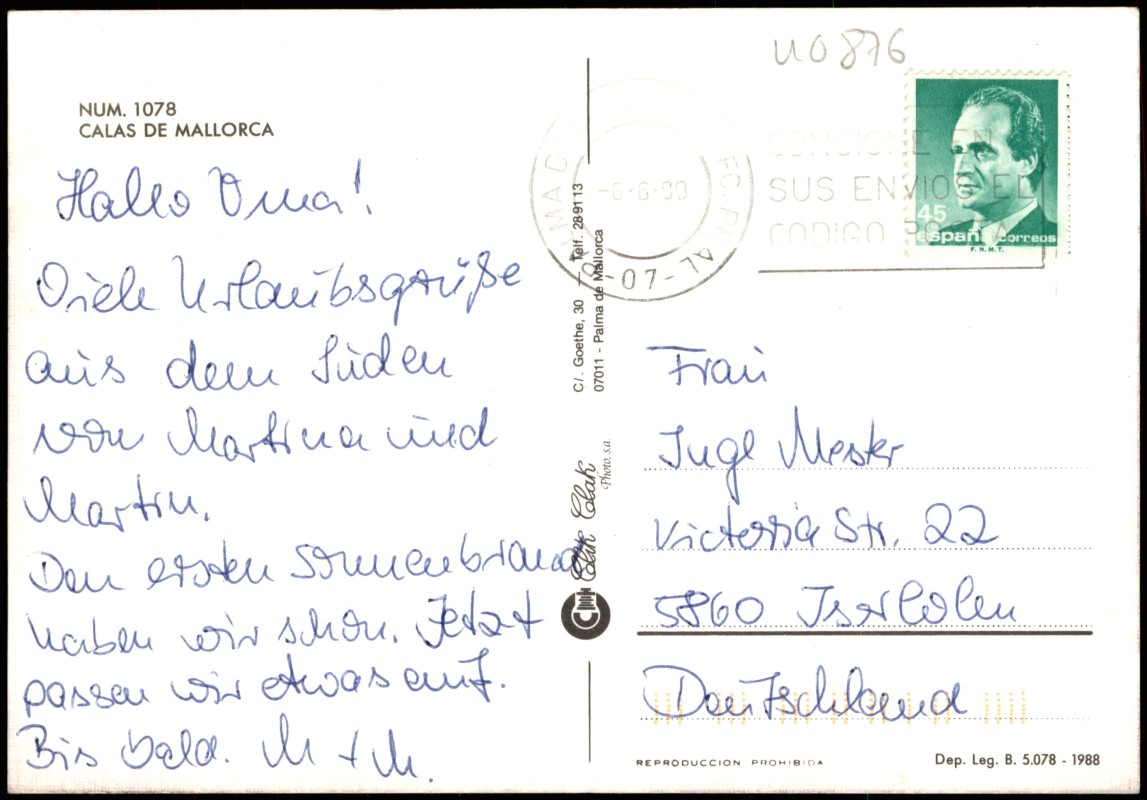 NUM. 1078
CALAS DE MALLORCA
Hallo Oma!
Viele Urlaubsgrüße
aus dem Süden
von Martina und
Martin.
Den ersten Sonnenbrand
haben wir schon. Jetzt
passen wir etwas auf.
Bis bald. M + M.
C/. Goethe, 30 - Telf. 289113
07011 - Palma de Mallorca
Clak Clak
Photo, s.a.
110876
-07-
SUS ENVIOS EL
CODIGO POSTAL
45
españa correos
F.N.M.T.
Frau
Inge Mester
Victoria Str. 22
5860 Iserlohn
Deutschland
REPRODUCCION PROHIBIDA
Dep. Leg. B. 5.078 - 1988